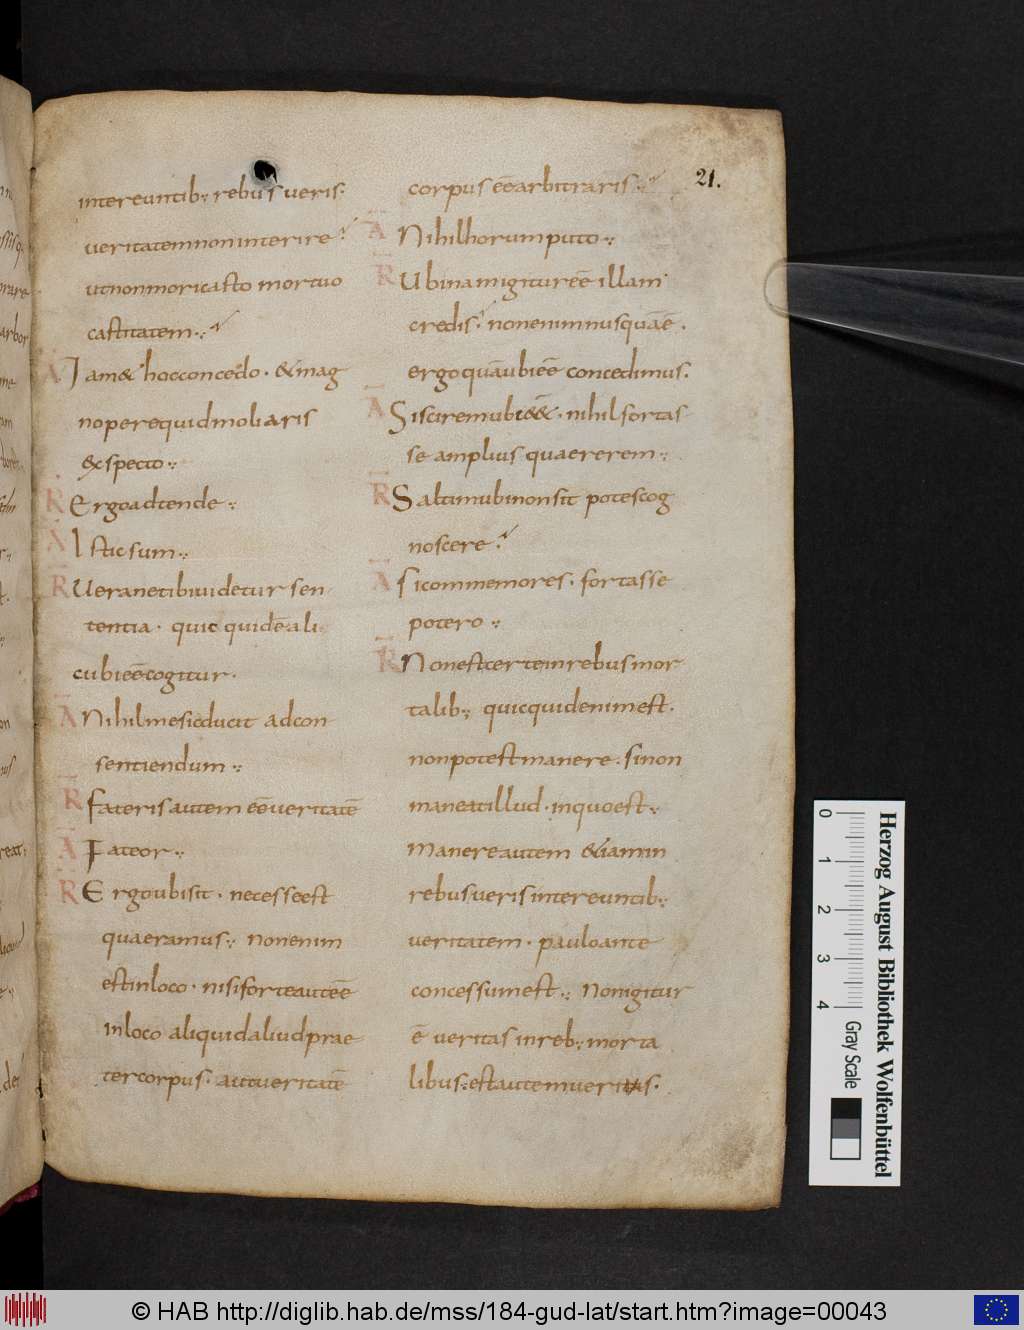 21.
intereuntib; rebus ueris.
ueritatem non interire?
ut non mori casto mortuo
castitatem.,
A Iam & hoc concedo. & mag
no pere quid moliaris
&specto.,
R Ergo adtende.,
A Istic sum.,
R Uerane tibi uidetur sen
tentia. quic quidē ali
cubi eē cogitur.
A Nihil me sic ducit ad con
sentiendum.,
R fateris autem eē ueritatē
A Fateor.,
R Ergo ubi sit. necesse est
quaeramus., non enim
est in loco. nisi forte aut eē
in loco aliquid aliud prae
ter corpus. aut ueritatē
corpus eē arbitraris.,
A Nihil horum puto.,
R Ubinam igitur eē illam
credis? non enim nusquā ē.
ergo quā ubi eē concedimus.
A Si scirem ubi e&. nihil fortas
se amplius quaererem.,
R Saltim ubi non sit potes cog
noscere?
A si commemores. fortasse
potero.,
R Non est certe in rebus mor
talib; quicquid enim est.
non potest manere. si non
maneat illud. in quo est.,
Manere autem &iam in
rebus ueris intereuntib;
ueritatem. paulo ante
concessum est., Non igitur
ē ueritas in reb; morta
libus; est autem ueritas.
0 1 2 3 4
Gray Scale
Herzog August Bibliothek Wolfenbüttel
© HAB http://diglib.hab.de/mss/184-gud-lat/start.htm?image=00043